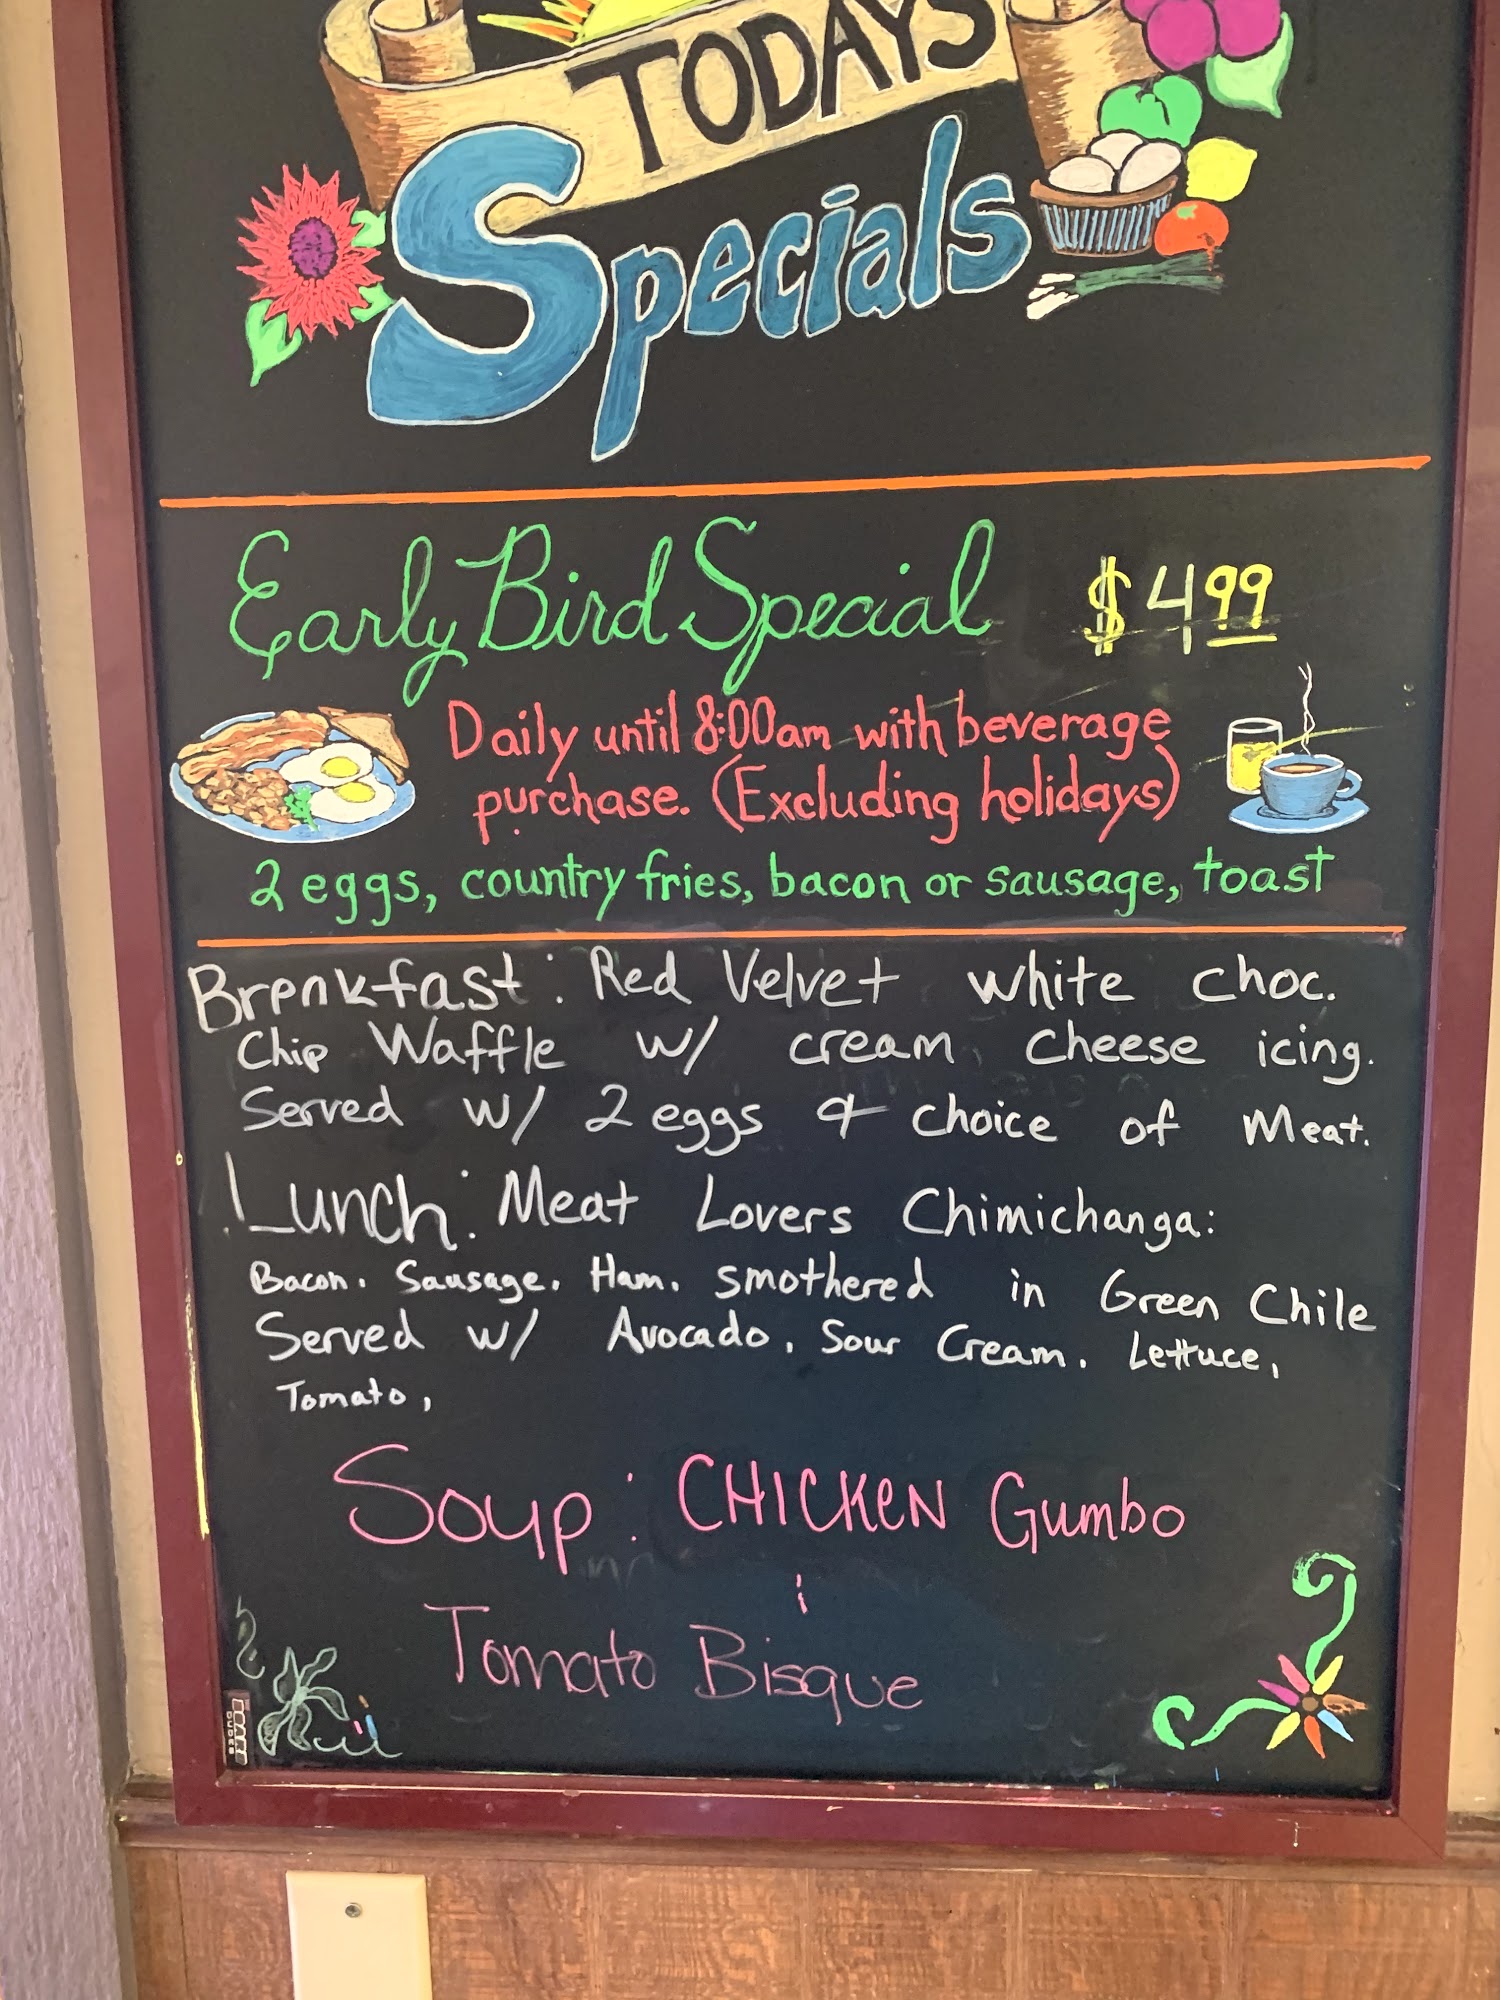 TODAYS
Specials
Early Bird Special $4.99
Daily until 8:00am with beverage
purchase. (Excluding holidays)
2 eggs, country fries, bacon or sausage, toast
Breakfast: Red Velvet white choc.
Chip Waffle w/ cream cheese icing.
Served w/ 2 eggs & choice of Meat.
Lunch: Meat Lovers Chimichanga:
Bacon. Sausage. Ham. smothered in Green Chile
Served w/ Avocado. Sour Cream. Lettuce,
Tomato,
Soup: CHICKEN Gumbo
Tomato Bisque